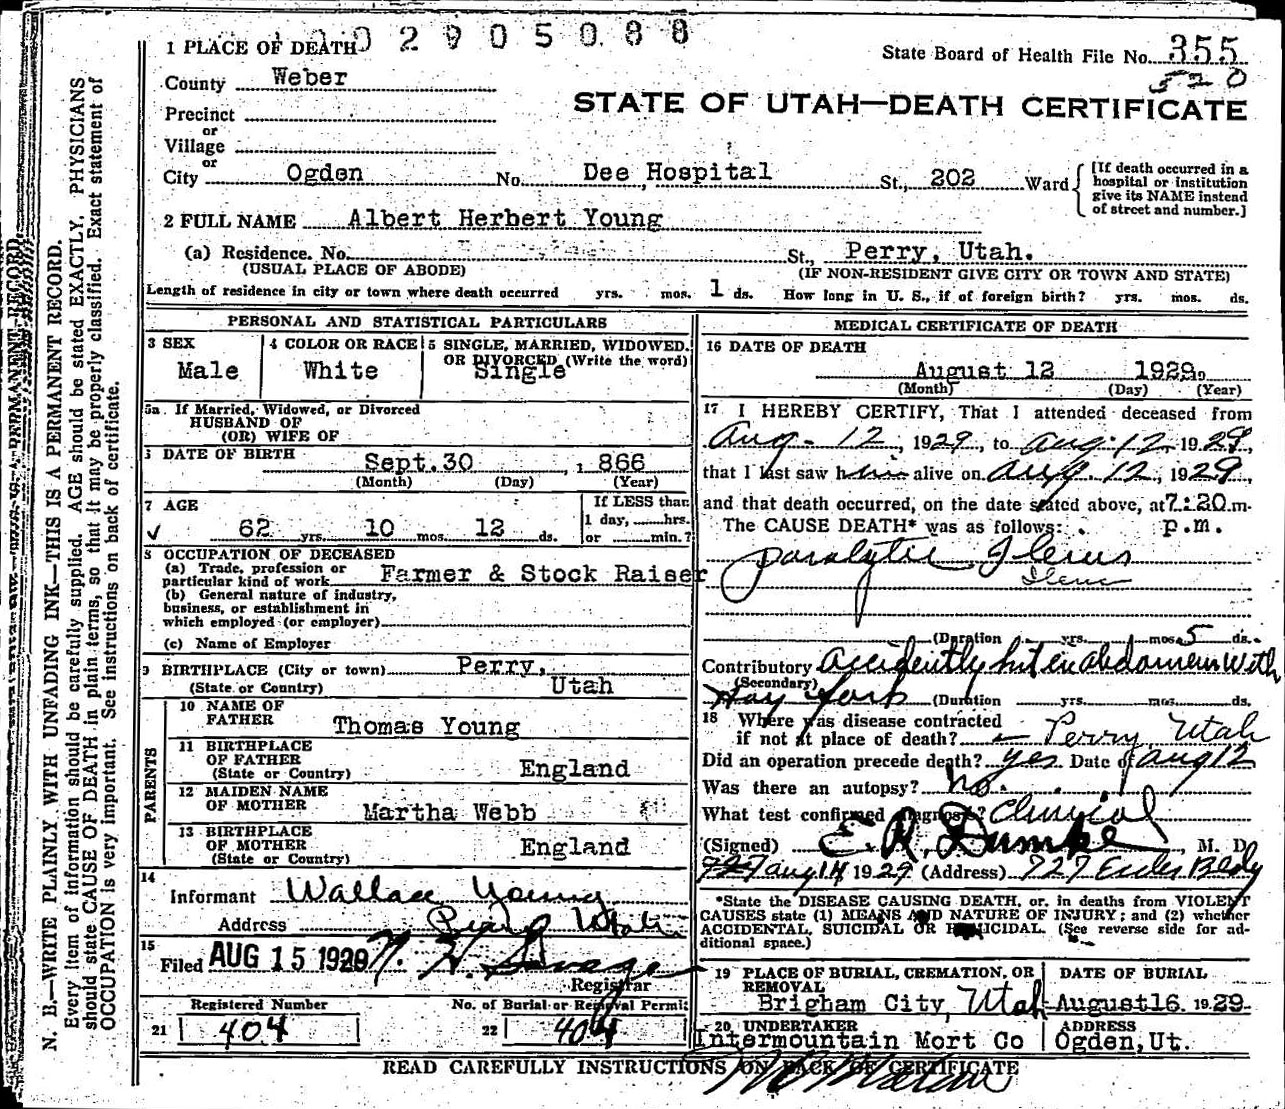 02905088
1 PLACE OF DEATH
State Board of Health File No. 355
520
County Weber
STATE OF UTAH—DEATH CERTIFICATE
Precinct
or
Village
or
City Ogden No. Dee Hospital St., 202 Ward
[If death occurred in a
hospital or institution
give its NAME instead
of street and number.]
2 FULL NAME Albert Herbert Young
(a) Residence. No. St., Perry, Utah.
(USUAL PLACE OF ABODE) (IF NON-RESIDENT GIVE CITY OR TOWN AND STATE)
Length of residence in city or town where death occurred yrs. mos. 1 ds. How long in U. S., if of foreign birth? yrs. mos. ds.
PERSONAL AND STATISTICAL PARTICULARS
3 SEX
Male
4 COLOR OR RACE
White
5 SINGLE, MARRIED, WIDOWED,
OR DIVORCED (Write the word)
Single
5a If Married, Widowed, or Divorced
HUSBAND OF
(OR) WIFE OF
DATE OF BIRTH
Sept. 30 , 866
(Month) (Day) (Year)
7 AGE
62 yrs. 10 mos. 12 ds.
If LESS than
1 day, hrs.
or min.?
8 OCCUPATION OF DECEASED
(a) Trade, profession or
particular kind of work Farmer & Stock Raiser
(b) General nature of industry,
business, or establishment in
which employed (or employer)
(c) Name of Employer
9 BIRTHPLACE (City or town) Perry,
(State or Country) Utah
PARENTS
10 NAME OF
FATHER Thomas Young
11 BIRTHPLACE
OF FATHER England
(State or Country)
12 MAIDEN NAME
OF MOTHER Martha Webb
13 BIRTHPLACE
OF MOTHER England
(State or Country)
14
Informant Wallace Young
Address Perry Utah
15
Filed AUG 15 1929 N. H. Savage
Registrar
Registered Number No. of Burial or Removal Permit
21 404 22 404
MEDICAL CERTIFICATE OF DEATH
16 DATE OF DEATH
August 12 1929.
(Month) (Day) (Year)
17 I HEREBY CERTIFY, That I attended deceased from
Aug. 12, 1929, to Aug. 12, 1929,
that I last saw him alive on Aug. 12, 1929,
and that death occurred, on the date stated above, at 7:20 m.
The CAUSE DEATH* was as follows: p.m.
paralytic Ileus
Ileus
(Duration yrs. mos. 5 ds.
Contributory Accidently hit in abdomen with
(Secondary)
Hay fork (Duration yrs. mos. ds.
18 Where was disease contracted
if not at place of death? Perry Utah
Did an operation precede death? yes Date of Aug 12
Was there an autopsy? no.
What test confirmed diagnosis? Clinical
(Signed) E. R. Dumke, M. D.
727 Aug 14 1929 (Address) 727 Eccles Bldg
*State the DISEASE CAUSING DEATH, or, in deaths from VIOLENT
CAUSES state (1) MEANS AND NATURE OF INJURY; and (2) whether
ACCIDENTAL, SUICIDAL OR HOMICIDAL. (See reverse side for ad-
ditional space.)
19 PLACE OF BURIAL, CREMATION, OR
REMOVAL
Brigham City, Utah
DATE OF BURIAL
August 16. 1929.
20 UNDERTAKER
Intermountain Mort Co
ADDRESS
Ogden, Ut.
READ CAREFULLY INSTRUCTIONS ON BACK OF CERTIFICATE
N. B.—WRITE PLAINLY WITH UNFADING INK—THIS IS A PERMANENT RECORD.
Every item of information should be carefully supplied. AGE should be stated EXACTLY. PHYSICIANS
should state CAUSE OF DEATH in plain terms, so that it may be properly classified. Exact statement of
OCCUPATION is very important. See instructions on back of certificate.